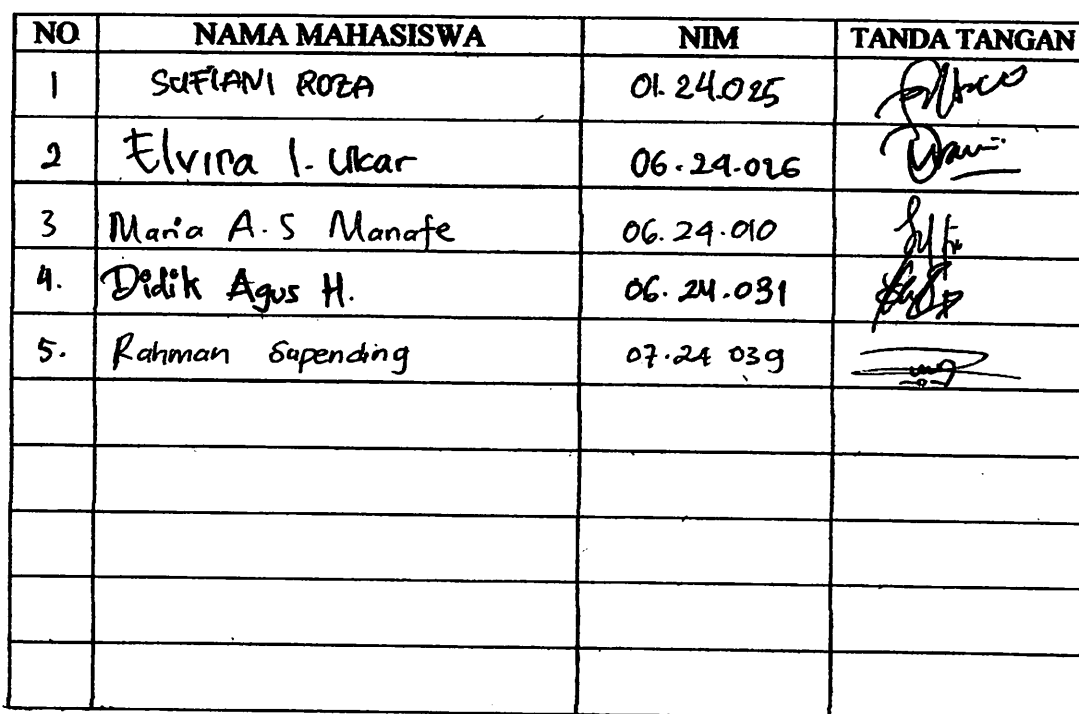 NO NAMA MAHASISWA NIM TANDA TANGAN
1 SUFIANI ROZA 01.24.025
2 Elvira I. Ukar 06.24.026
3 Maria A.S Manafe 06.24.010
4. Didik Agus H. 06.24.031
5. Rahman Sapending 07.24 039